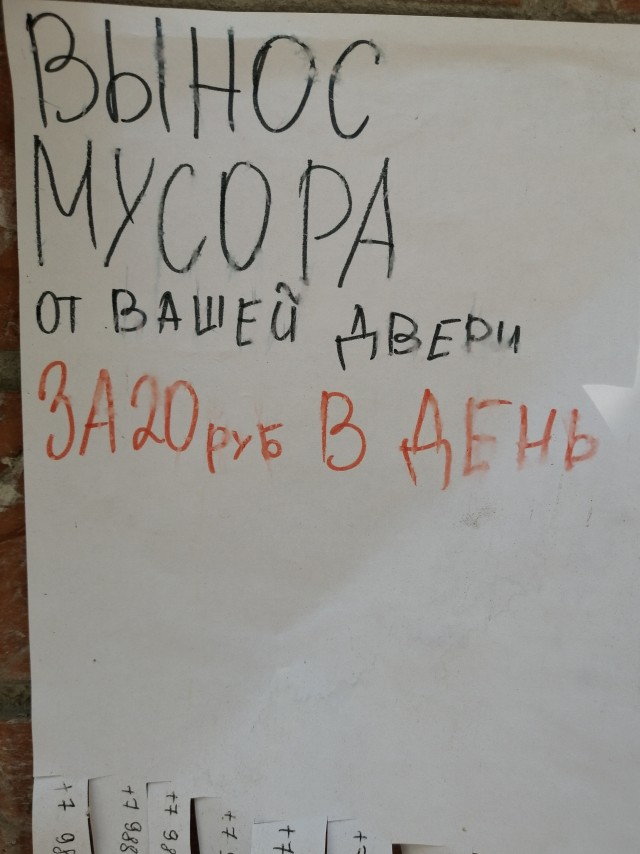 ВЫНОС
МУСОРА
ОТ ВАШЕЙ ДВЕРИ
ЗА 20 руб В ДЕНЬ
+7 98
+7 988
+7 98
+7 9
+7
+7